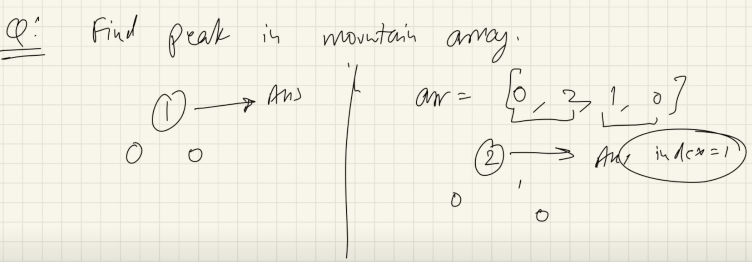 Q: Find peak in mountain array.
1 → Ans
0 0
arr = [0, 2, 1, 0]
2 → Ans index=1
0 1
0